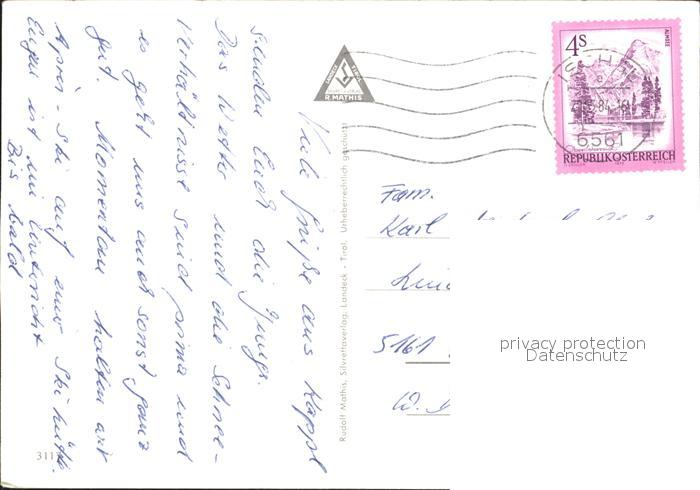 Viele Grüße aus Kappl
senden Euch die Jungs.
Das Wetter und die Schnee-
verhältnisse sind prima und
es geht uns auch sonst ganz
gut. Momentan halten wir
Après-Ski auf einer Skihütte.
Eugen ist im Unterricht
Bis bald
311
R. MATHIS
Rudolf Mathis, Silvrettaverlag, Landeck - Tirol. Urheberrechtlich geschützt
4s
ALMSEE
REPUBLIK ÖSTERREICH
ISCHGL
84-16
6561
Fam.
Karl
5161
W.
privacy protection
Datenschutz